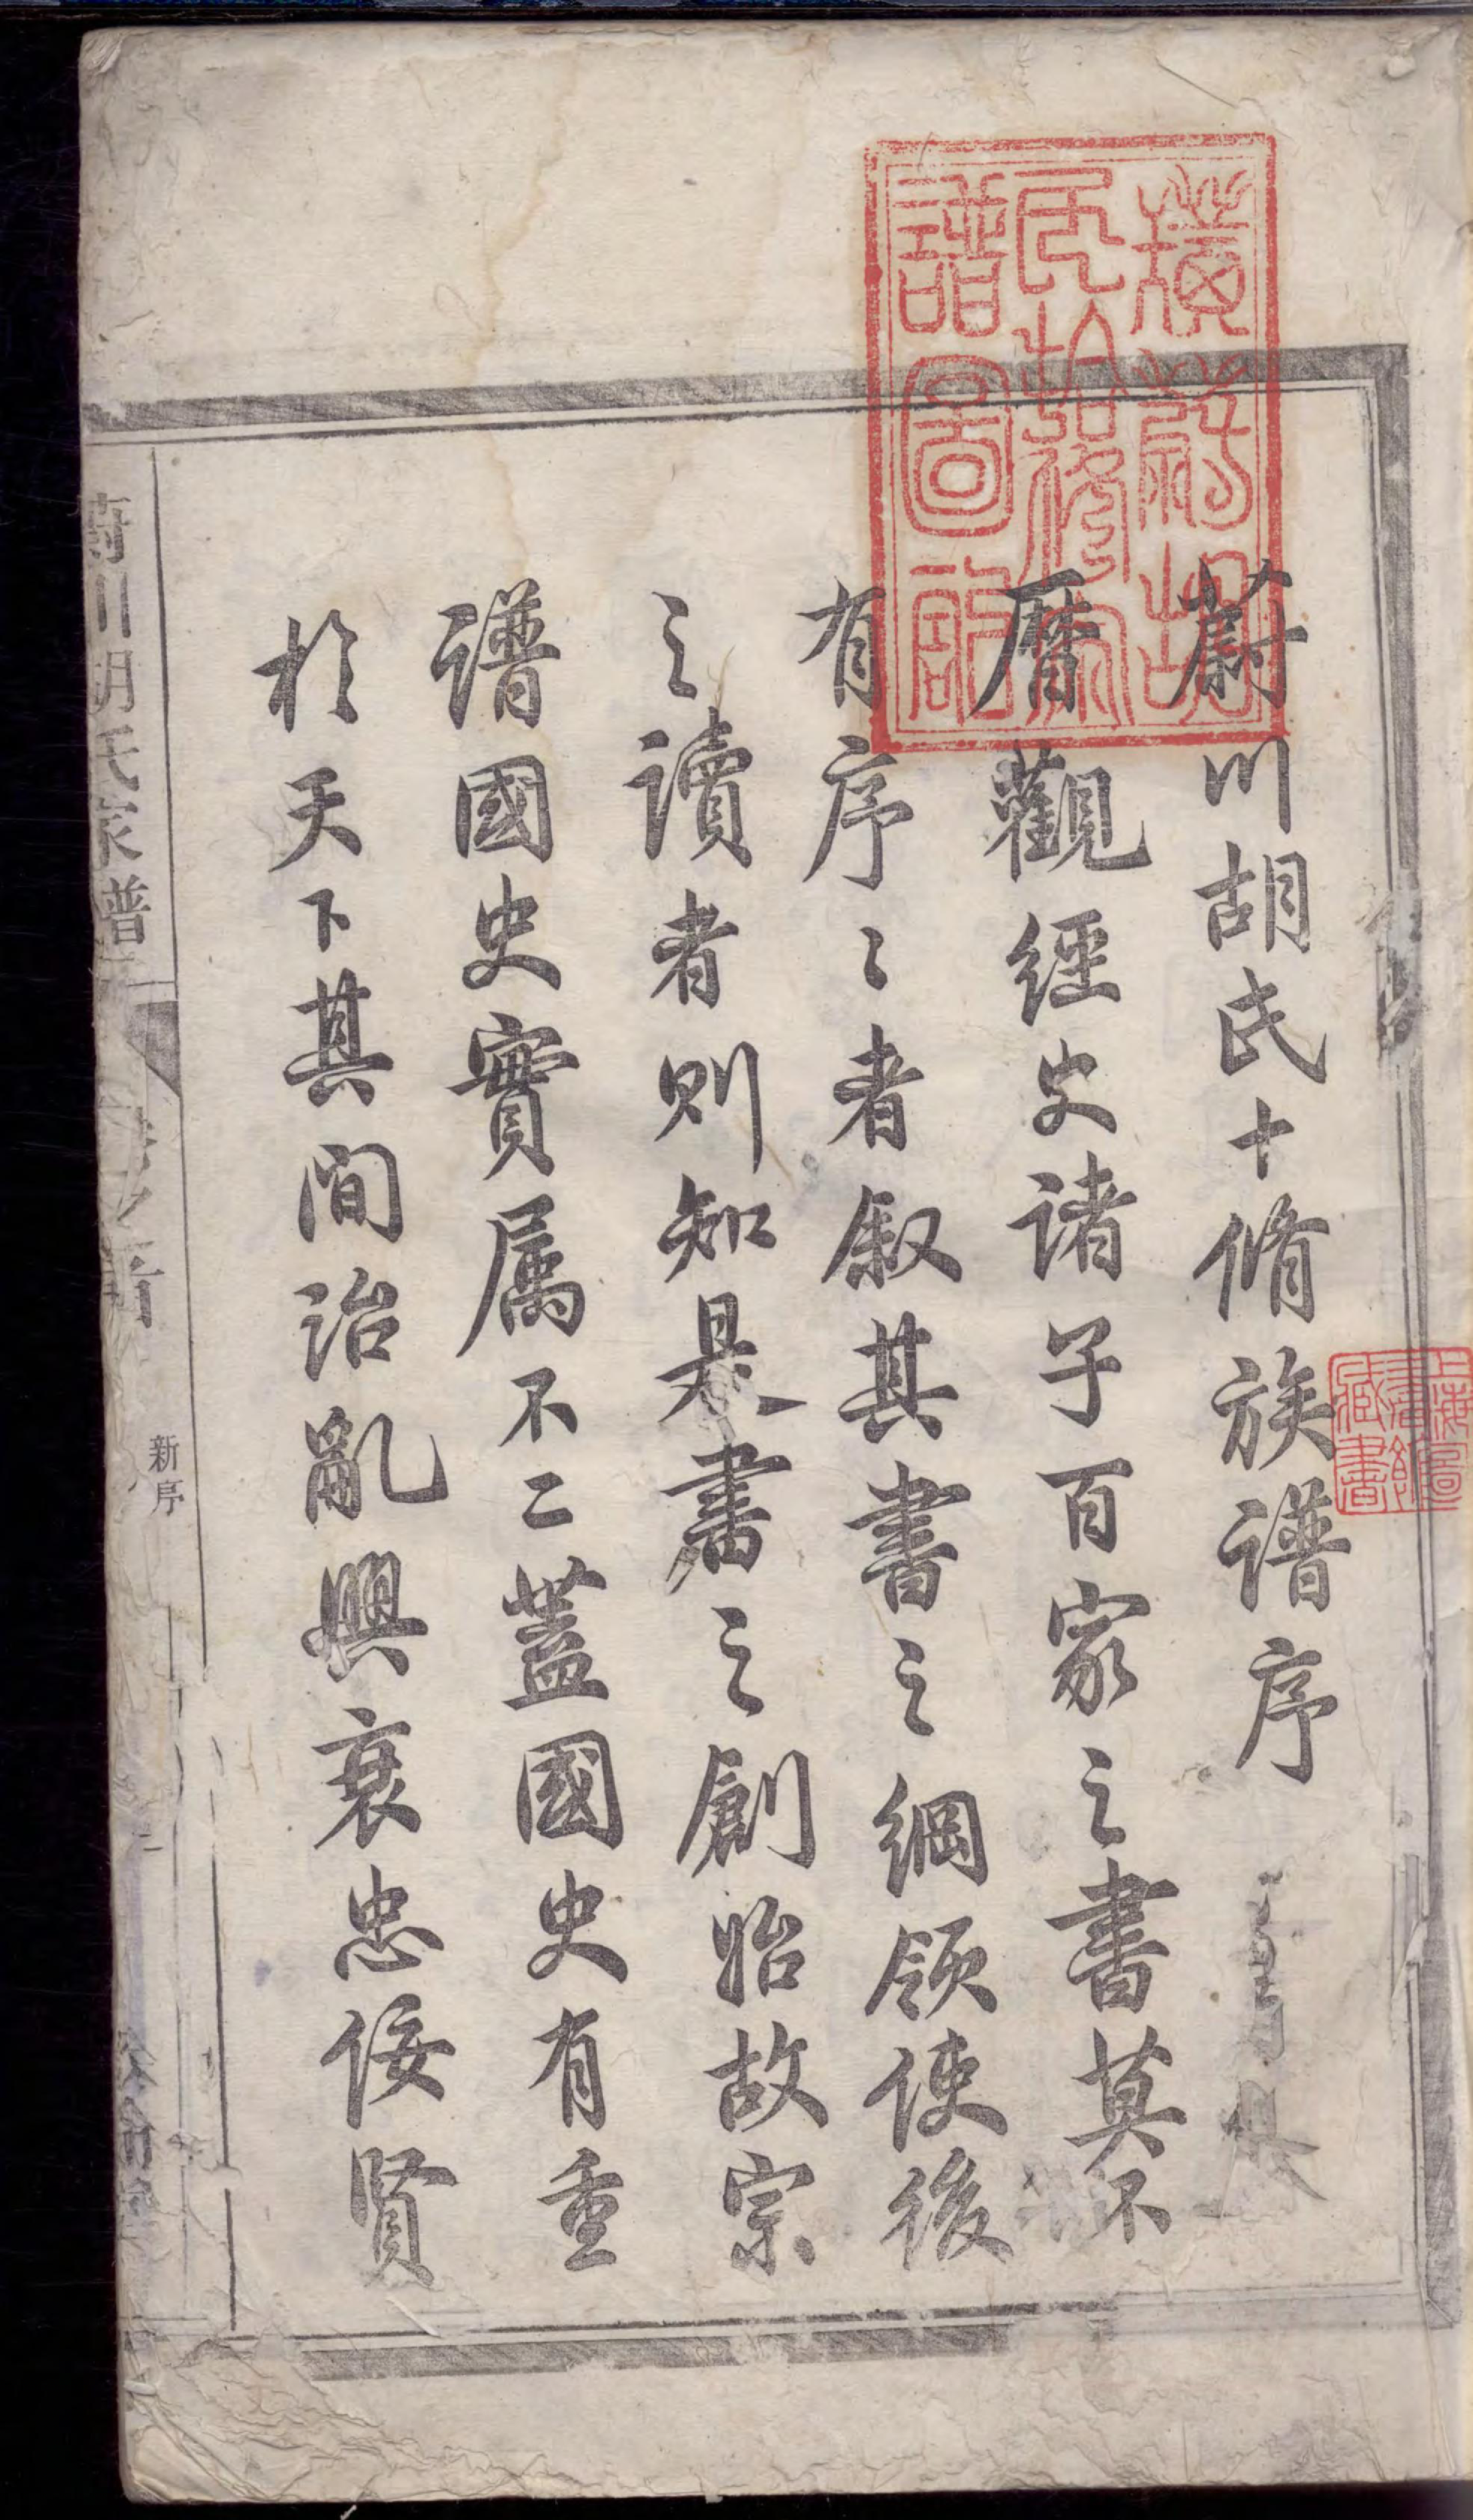 蔚川胡氏十脩族譜序
曆觀經史諸子百家之書莫不
有序〻者叙其書之綱領使後
之讀者則知是書之創始故宗
譜國史實属不二蓋國史有重
於天下其間治亂興衰忠佞賢
蔚川胡氏家譜
卷首
新序
譜圖記
上海圖書館藏書